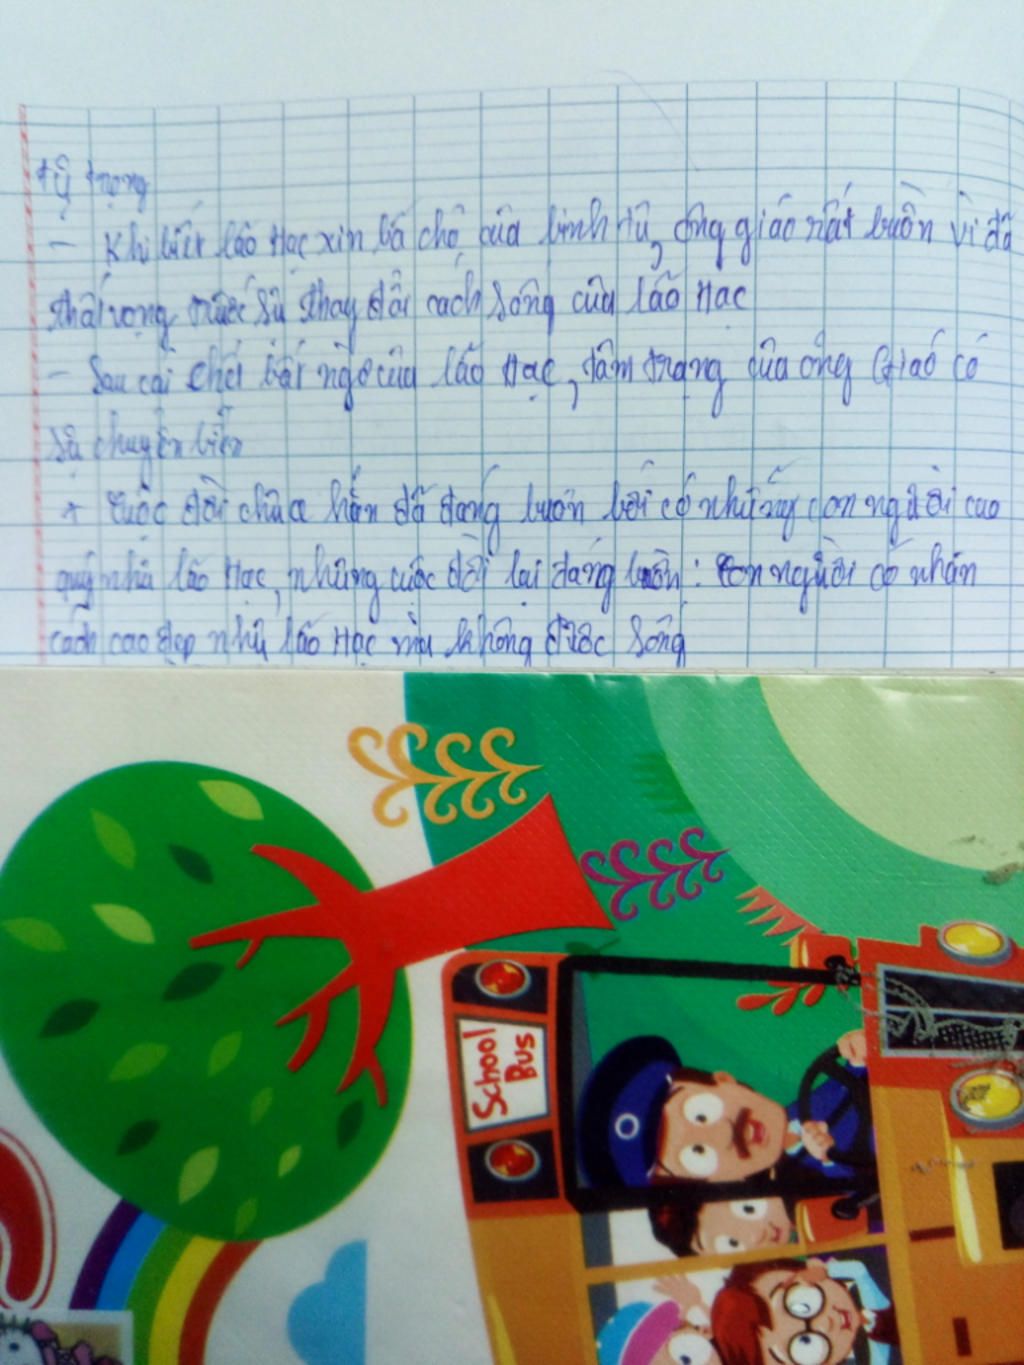 tự trọng
- Khi biết lão Hạc xin bả chó của binh tư, ông giáo rất buồn vì đã
thất vọng trước sự thay đổi cách sống của lão Hạc
- Sau cái chết bất ngờ của lão Hạc, tâm trạng của ông Giáo có
sự chuyển biến
+ Cuộc đời chưa hẳn đã đáng buồn bởi có những con người cao
quý như lão Hạc, nhưng cuộc đời lại đáng buồn: Con người có nhân
cách cao đẹp như lão Hạc mà không được sống
School
Bus